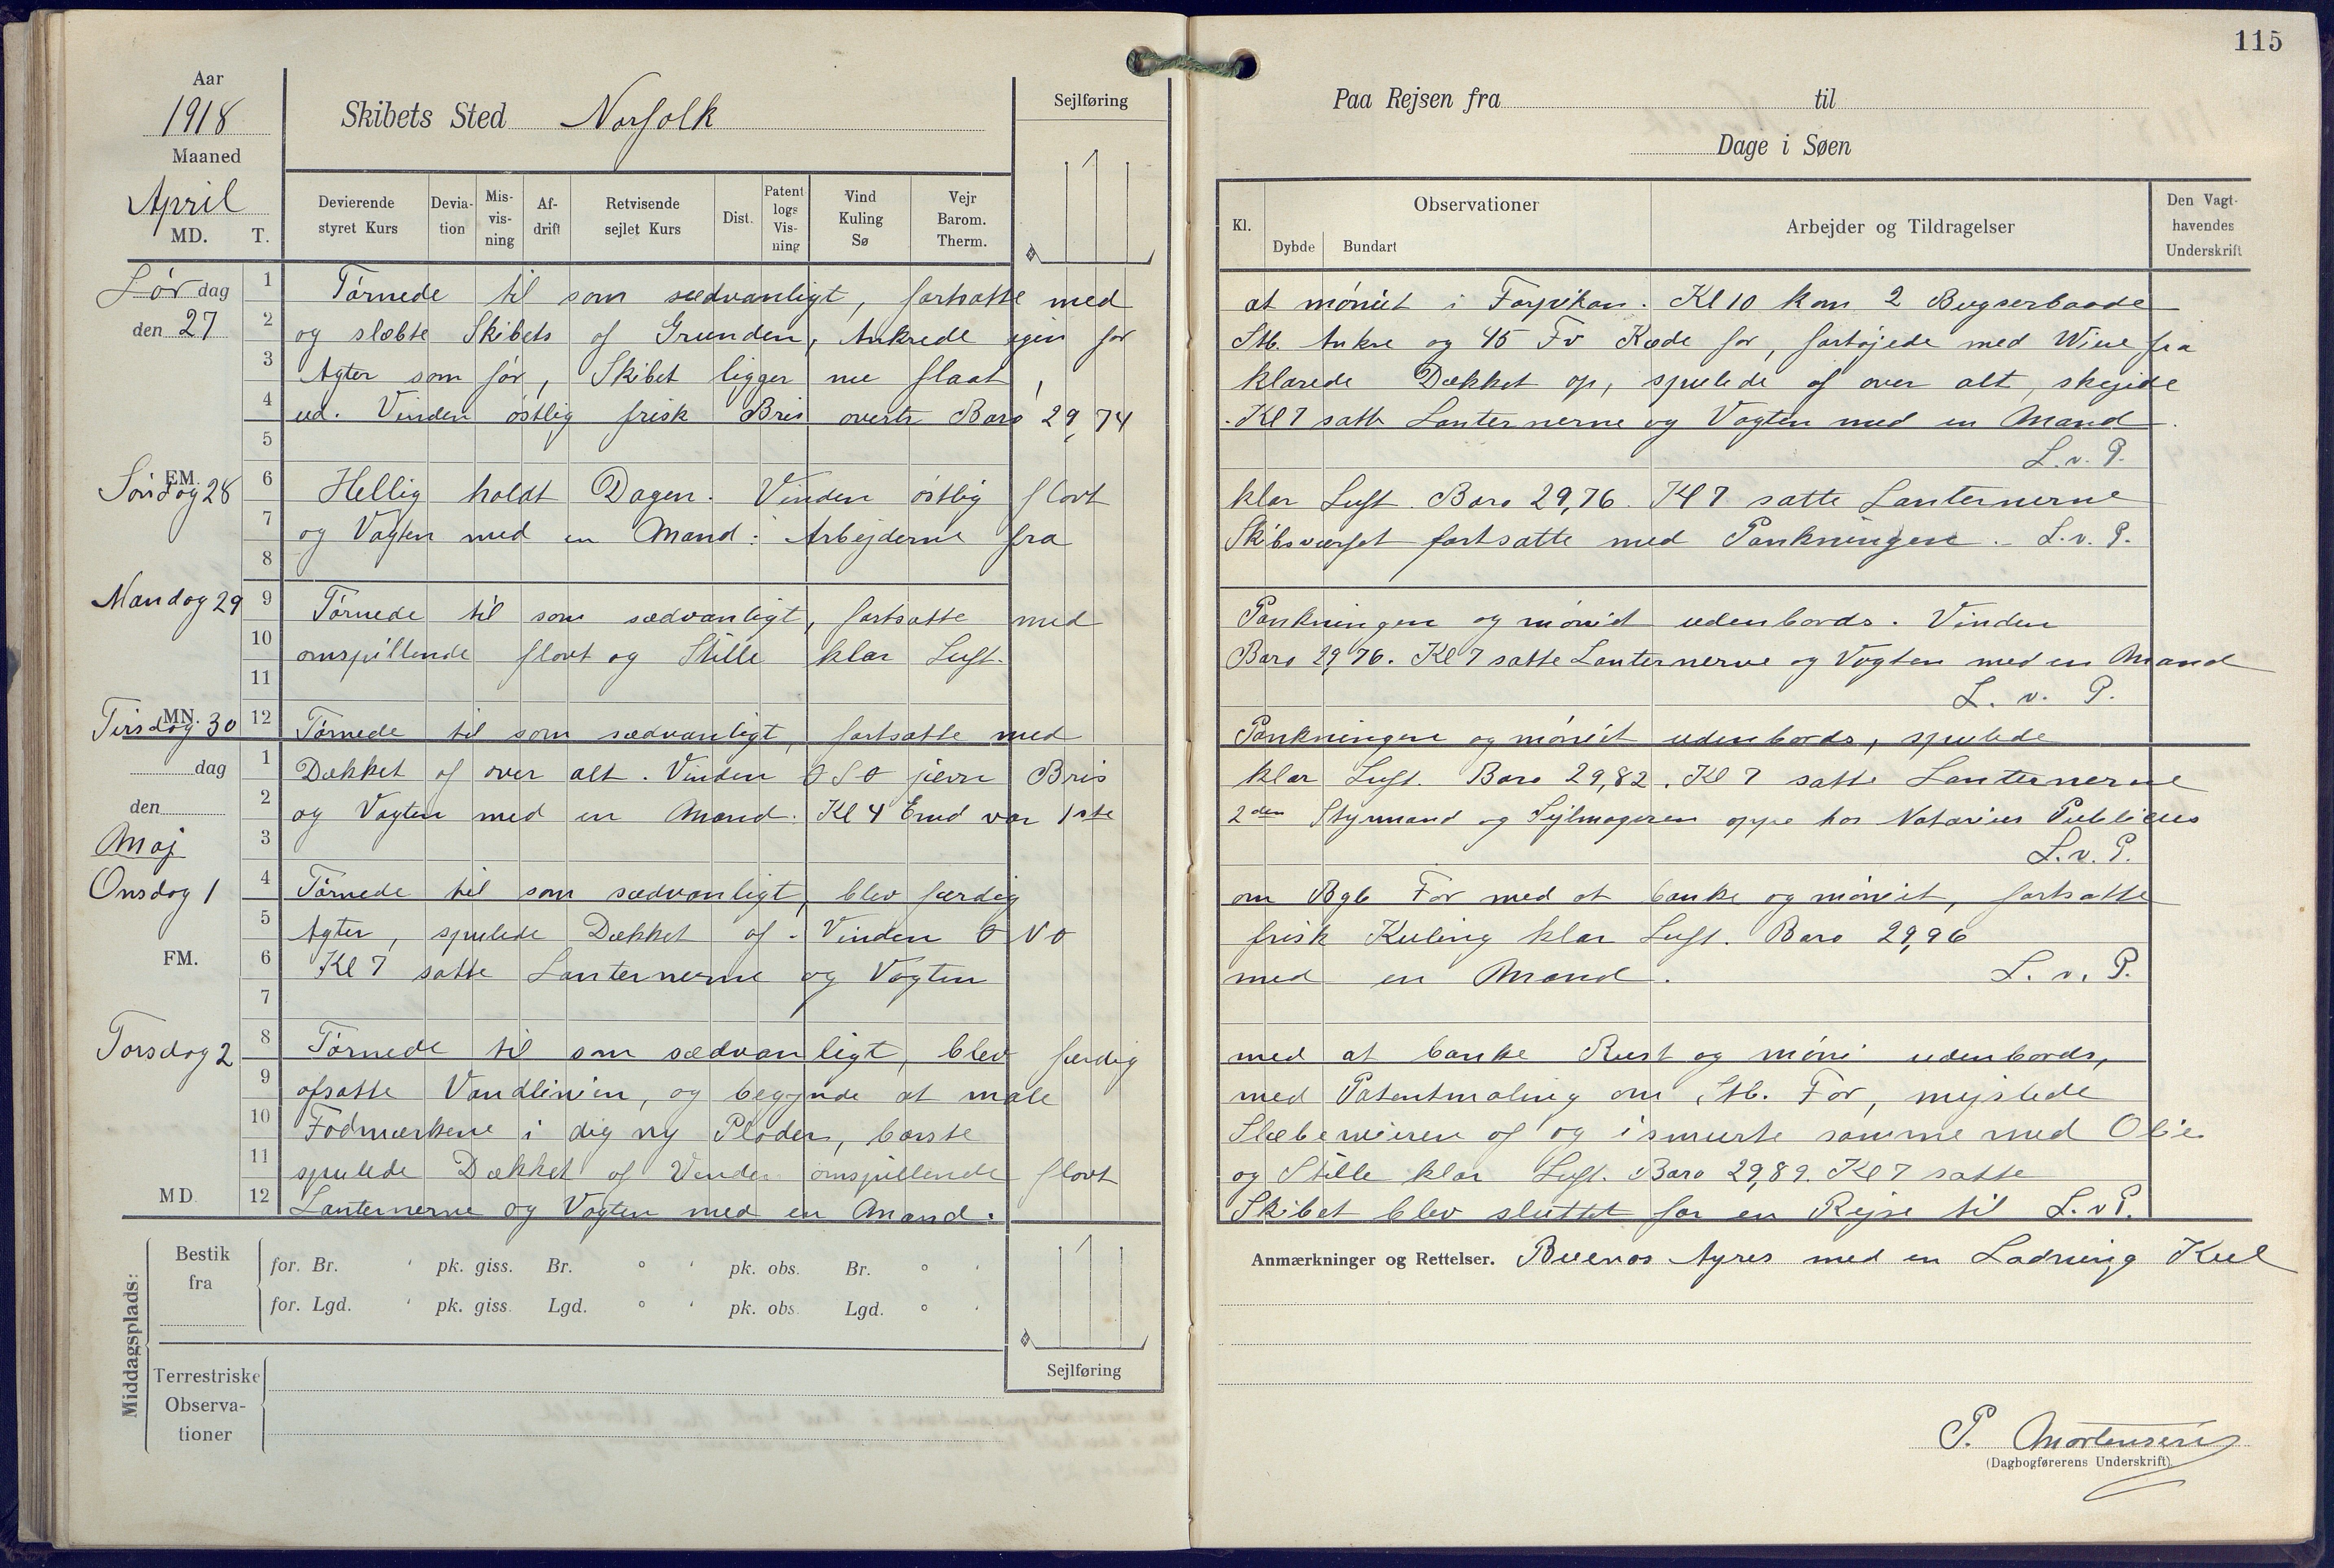 115
Aar
1918
Maaned
April
MD. T.
Skibets Sted Norfolk
Sejlføring
Devierende styret Kurs
Deviation
Misvisning
Afdrift
Retvisende sejlet Kurs
Dist.
Patent logs Visning
Vind Kuling Sø
Vejr Barom. Therm.
Paa Rejsen fra til
Dage i Søen
Kl.
Observationer
Dybde Bundart
Arbejder og Tildragelser
Den Vagthavendes Underskrift
Lørdag 1 Tørnede til som sædvanligt, fortsatte med at møniet i Forpikan. Kl 10 kom 2 Bugserbaade
den 27 2 og slæbte Skibets af Grunden, Ankrede igin for Stb. Ankre og 45 Fv Kæde for, fortøjede med Wire fra
3 Agter som før, Skibet ligger nu flaat, klarede Dækket op, spulede af over alt, skejede
4 ud. Vinden østlig frisk Bris overtr Baro 29,74. Kl 7 satte Lanternerne og Vagten med en Mand.
5 L. v. P.
EM. Søndag 28 6 Hellig holdt Dagen. Vinden østlig flovt klar Luft. Baro 29,76. Kl 7 satte Lanternerne
7 og Vagten med en Mand: Arbejderne fra Skibsværfet fortsatte med Pankningen. L. v. P.
8
Mandag 29 9 Tørnede til som sædvanligt, fortsatte med Pankningen og møniet udenbords. Vinden
10 omspillende flovt og Stille klar Luft. Baro 29,76. Kl 7 satte Lanternerne og Vagten med en Mand
11 L. v. P.
MN. Tirsdag 30 12 Tørnede til som sædvanligt, fortsatte med Pankningen og møniet udenbords, spulede
dag 1 Dækket af over alt. Vinden OSO jævn Bris klar Luft. Baro 29,82. Kl 7 satte Lanternerne
den 2 og Vagten med en Mand. Kl 4 Emd var 1ste 2den Styrmand og Sejlmageren oppe hos Notarius Publicus
Maj 3 L. v. P.
Onsdag 1 4 Tørnede til som sædvanligt, blev færdig om Bgb For med at banke og møniet, fortsatte
5 Agter, spulede Dækket af. Vinden ONO frisk Kuling klar Luft. Baro 29,96
FM. 6 Kl 7 satte Lanternerne og Vagten med en Mand. L. v. P.
7
Torsdag 2 8 Tørnede til som sædvanligt, blev færdig med at banke Rust og møni udenbords,
9 afsatte Vandlinien, og begynde at male med Patentmaling om Stb. For, mejslede
10 Fodmærkene i dig ny Plader, børste Slæbewieren af og ismurte samme med Olie
11 spulede Dækket af Vinden omspillende flovt og Stille klar Luft. Baro 29,89. Kl 7 satte
MD. 12 Lanternerne og Vagten med en Mand. Skibet blev sluttet for en Rejse til L. v P.
Anmærkninger og Rettelser. Buenos Ayres med en Ladning Kul
Middagsplads:
Bestik fra
for. Br. ' pk. giss. Br. ° ' pk. obs. Br. ° '
for. Lgd. ' pk. giss. Lgd. ° ' pk. obs. Lgd. ° '
Terrestriske Observationer
Sejlføring
P. Mortensen
(Dagbogførerens Underskrift)